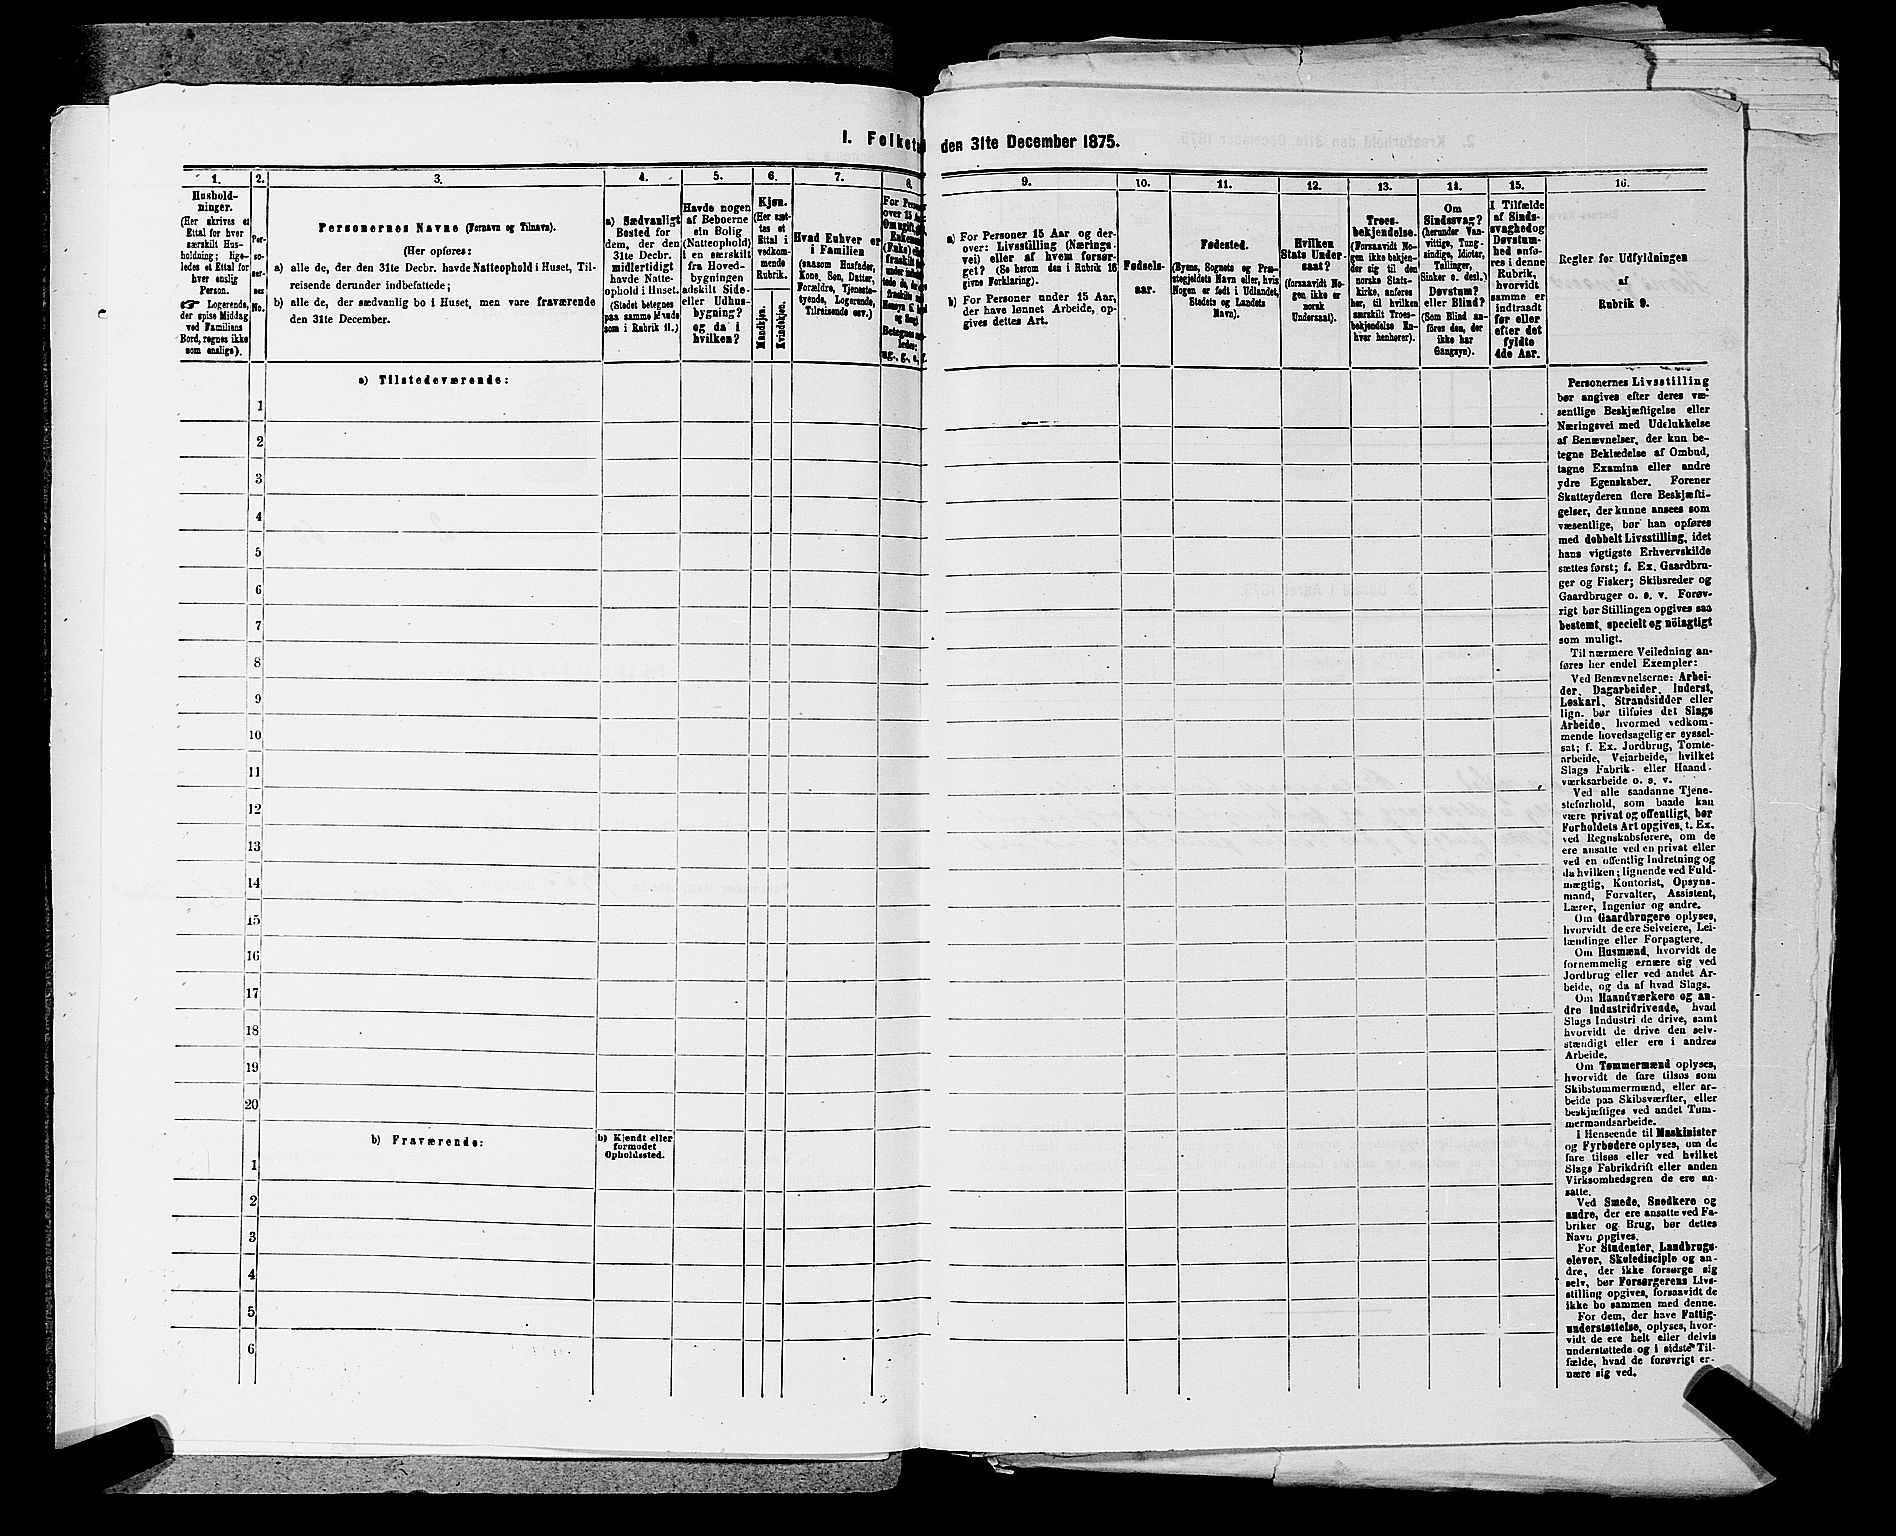 I. Folket
den 31te December 1875.
1.
2.
3.
4.
5.
6.
7.
8.
9.
10.
11.
12.
13.
14.
15.
16.
Hushold-
ninger.
(Her skrives et
Ettal for hver
særskilt Hus-
holdning; lige-
ledes et Ettal for
hver enslig
Person.
☞ Logerende,
der spise Middag
ved Familiens
Bord, regnes ikke
som enslige).
Per-
so-
ner-
nes
No.
Personernes Navne (Fornavn og Tilnavn).
(Her opføres:
a) alle de, der den 31te Decbr. havde Natteophold i Huset, Til-
reisende derunder indbefattede;
b) alle de, der sædvanlig bo i Huset, men vare fraværende
den 31te December.
a) Sædvanligt
Bosted for
dem, der den
31te Decbr.
midlertidigt
havde Natte-
ophold i Huset.
(Stedet betegnes
paa samme Maade
som i Rubrik 11.)
Havde nogen
af Beboerne
sin Bolig
(Natteophold)
i en særskilt
fra Hoved-
bygningen
adskilt Side-
eller Udhus-
bygning?
og da i
hvilken?
Kjøn.
(Her sæt-
tes et
Ettal i
vedkom-
mende
Rubrik.
Mandkjøn.
Kvindekjøn.
Hvad Enhver er
i Familien
(saasom Husfader,
Kone, Søn, Datter,
Forældre, Tjeneste-
tyende, Logerende,
Tilreisende osv.)
For Pers
over 15 Aar
Om ugift, gift,
Enkemand
(Enke) eller
fraskilt
a) For Personer 15 Aar og der-
over: Livsstilling (Nærings-
vei) eller af hvem forsør-
get? (Se herom den i Rubrik 16
givne Forklaring).
b) For Personer under 15 Aar,
der have lønnet Arbeide, op-
gives dettes Art.
Fødsels-
aar.
Fødested.
(Byens, Sognets og Præ-
stegjeldets Navn eller, hvis
Nogen er født i Udlandet,
Stedets og Landets
Navn).
Hvilken
Stats Under-
saat?
(forsaavidt No-
gen ikke er
norsk
Undersaat).
Troes-
bekjendelse.
(Forsaavidt No-
gen ikke bekjen-
der sig til den
norske Stats-
kirke, anføres
her, til hvilken
særskilt Troes-
bekjendelse En-
hver henhører).
Om
Sindssvag?
(herunder Van-
vittige, Tung-
sindige, Idioter,
Tullinger,
Sinker o. desl.)
Døvstum?
eller Blind?
(Som Blind an-
føres den, der
ikke har
Gangsyn).
I Tilfælde
af Sinds-
svaghed og
Døvstum-
hed anfø-
res i denne
Rubrik,
hvorvidt
samme er
indtraadt
før eller
efter det
fyldte
4de Aar.
Regler for Udfyldningen
af
Rubrik 9.
a) Tilstedeværende:
1
2
3
4
5
6
7
8
9
10
11
12
13
14
15
16
17
18
19
20
b) Fraværende:
b) Kjendt eller
formodet
Opholdssted.
1
2
3
4
5
6
Personernes Livsstilling
bør angives efter deres væ-
sentlige Beskjæftigelse eller
Næringsvei med Udelukkelse
af Benævnelser, der kun be-
tegne Beklædelse af Ombud,
tagne Examina eller andre
ydre Egenskaber. Forener
Skatteyderen flere Beskjæfti-
gelser, der kunne ansees som
væsentlige, bør han opføres
med dobbelt Livsstilling, idet
hans vigtigste Erhvervskilde
sættes først; f. Ex. Gaardbru-
ger og Fisker; Skibsreder og
Gaardbruger o. s. v. Forøv-
rigt bør Stillingen opgives saa
bestemt, specielt og nöiagtigt
som muligt.
Til nærmere Veiledning an-
føres her endel Exempler:
Ved Benævnelserne: Arbei-
der, Dagarbeider, Inderst,
Løskarl, Strandsidder eller
lign. bør tilføies det Slags
Arbeide, hvormed vedkom-
mende hovedsagelig er syssel-
sat; f. Ex. Jordbrug, Tomte-
arbeide, Veiarbeide, hvilket
Slags Fabrik- eller Haand-
værksarbeide o. s. v.
Ved alle saadanne Tjene-
steforhold, som baade kan
være privat og offentligt, bør
Forholdets Art opgives, t. Ex.
ved Regnskabsførere, om de
ere ansatte ved en privat eller
ved en offentlig Indretning og
da hvilken; lignende ved Fuld-
mægtig, Kontorist, Opsyns-
mand, Forvalter, Assistent,
Lærer, Ingeniør og andre.
Om Gaardbrugere oplyses,
hvorvidt de ere Selveiere, Lei-
lændinge eller Forpagtere.
Om Husmænd, hvorvidt de
fornemmelig ernære sig ved
Jordbrug eller ved andet Ar-
beide, og da af hvad Slags.
Om Haandværkere og an-
dre Industridrivende, hvad
Slags Industri de drive, samt
hvorvidt de drive den selv-
stændigt eller ere i andres
Arbeide.
Om Tømmermænd oplyses,
hvorvidt de fare tilsøs som
Skibstømmermænd, eller ar-
beide paa Skibsværfter, eller
beskjæftiges ved andet Tøm-
mermandsarbeide.
I Henseende til Maskinister
og Fyrbødere oplyses, om de
fare tilsøs eller ved hvilket
Slags Fabrikdrift eller anden
Virksomhedsgren de ere an-
satte.
Ved Smede, Snedkere og
andre, der ere ansatte ved Fa-
briker og Brug, bør dettes
Navn opgives.
For Studenter, Landbrugs-
elever, Skoledisciple og an-
dre, der ikke forsørge sig
selv, bør Forsørgerens Livs-
stilling opgives, forsaavidt de
ikke bo sammen med denne.
For dem, der have Fattig-
understøttelse, oplyses, hvor-
vidt de ere helt eller delvis
understøttede og i sidste Til-
fælde, hvad de forøvrigt er-
nære sig ved.